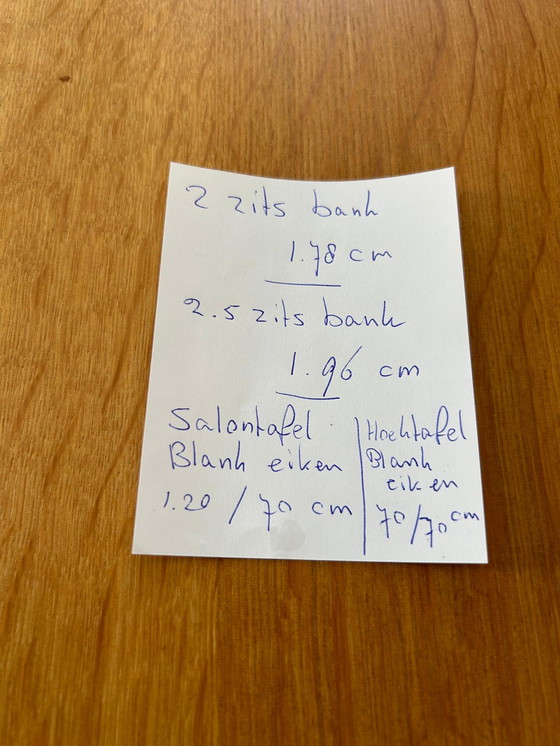 2 zits bank
1.78 cm
2.5 zits bank
1.96 cm
Salontafel
Blank eiken
1.20 / 70 cm
Hoektafel
Blank
eiken
70/70 cm